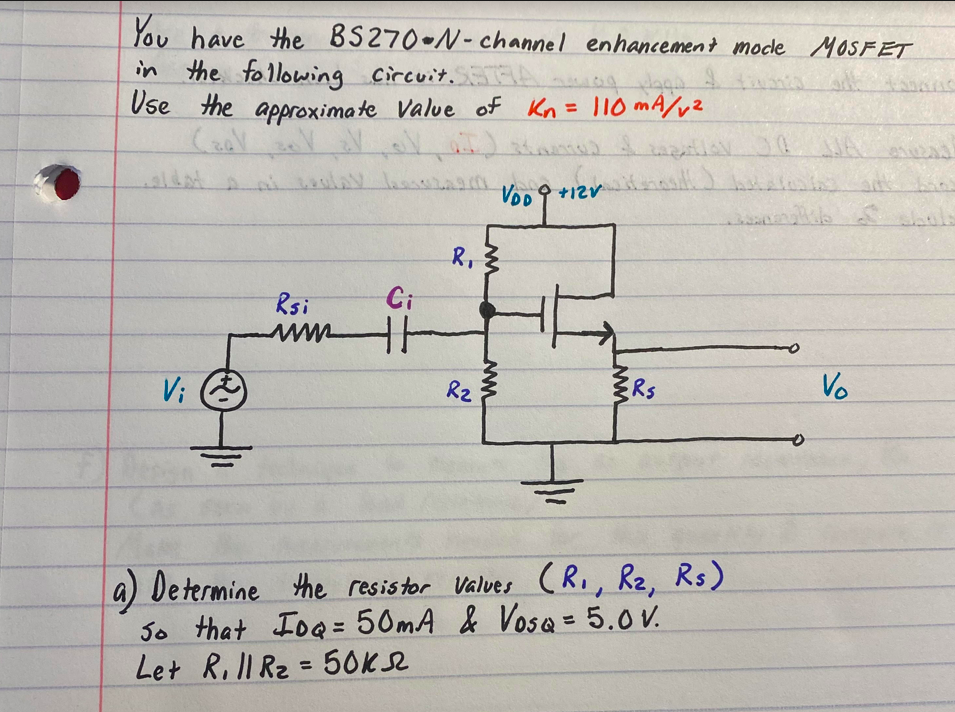 You have the BS270-N-channel enhancement mode MOSFET
in the following circuit.
Use the approximate value of Kn = 110 mA/v²
VDD +12V
R1
Rsi
Ci
Vi
R2
Rs
Vo
a) Determine the resistor values (R1, R2, Rs)
so that IDQ = 50mA & VDSQ = 5.0V.
Let R1 || R2 = 50KΩ